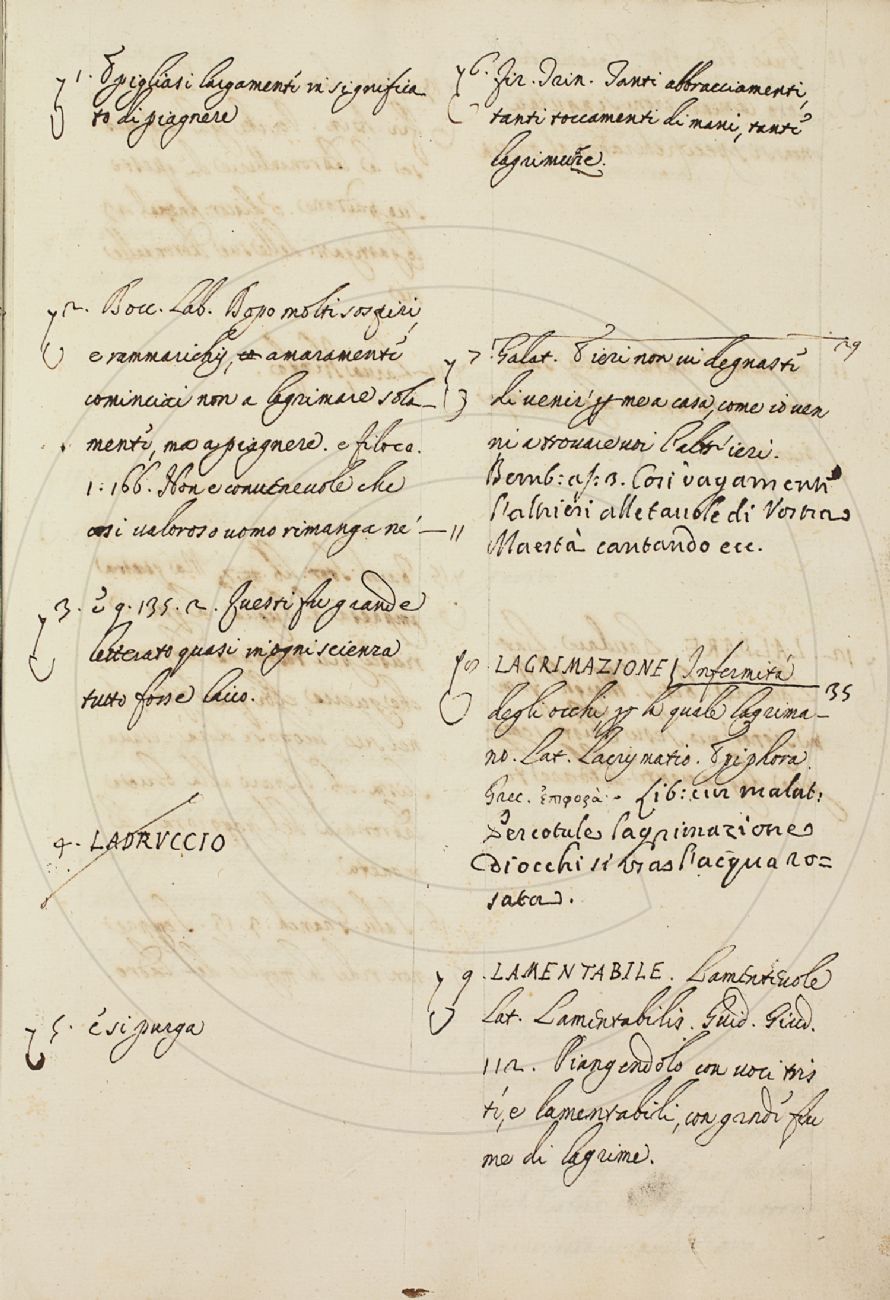 1. E pigliasi largamente in significa
to di piagnere
2. Bocc. Lab. Dopo molti sospiri,
e rammarichij, amaramente
cominciai non a lagrimare sola_
mente, ma a piagnere. e filoco.
1: 166. Non e convenevole che
così valoroso uomo rimanga ne'
3. è g. 135. 2. Questi fu grande
letterato quasi in ogni scienza
tutto fosse laico.
4. LADRVCCIO
5. è si purga
6. Fir. Trin. Tanti abbracciamenti,
tanti toccamenti di mani, tante
lagrimuzze.
7. Galat. E ieri non vi degnaste 29
di venir p me a casa, come io ven
ni a trovare voi l'altr'ieri.
Bemb: as: 3. Così vagamente
l'altrieri alle tavole di Vostra
11 Maestà cantando ecc.
8. LAGRIMAZIONE Infermità
degli occhi, p la quale lagrima_ 35
no. Lat. Lacrymatio. Epiphora.
Grec. ἐπιφορά. Lib: cur malat:
lagrimazione
D'occhi si vras l'acqua ro=
sata.
9. LAMENTABILE. Lamentevole
Lat. Lamentabilis. Guid. Giud.
112. Piangendolo con voci tris
ti, e lamentabili, con grande fiu
me di lagrime.